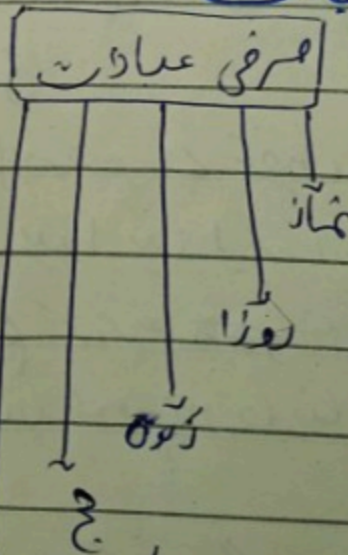 صرفی عبادات
نماز
روزا
زکوٰۃ
حج